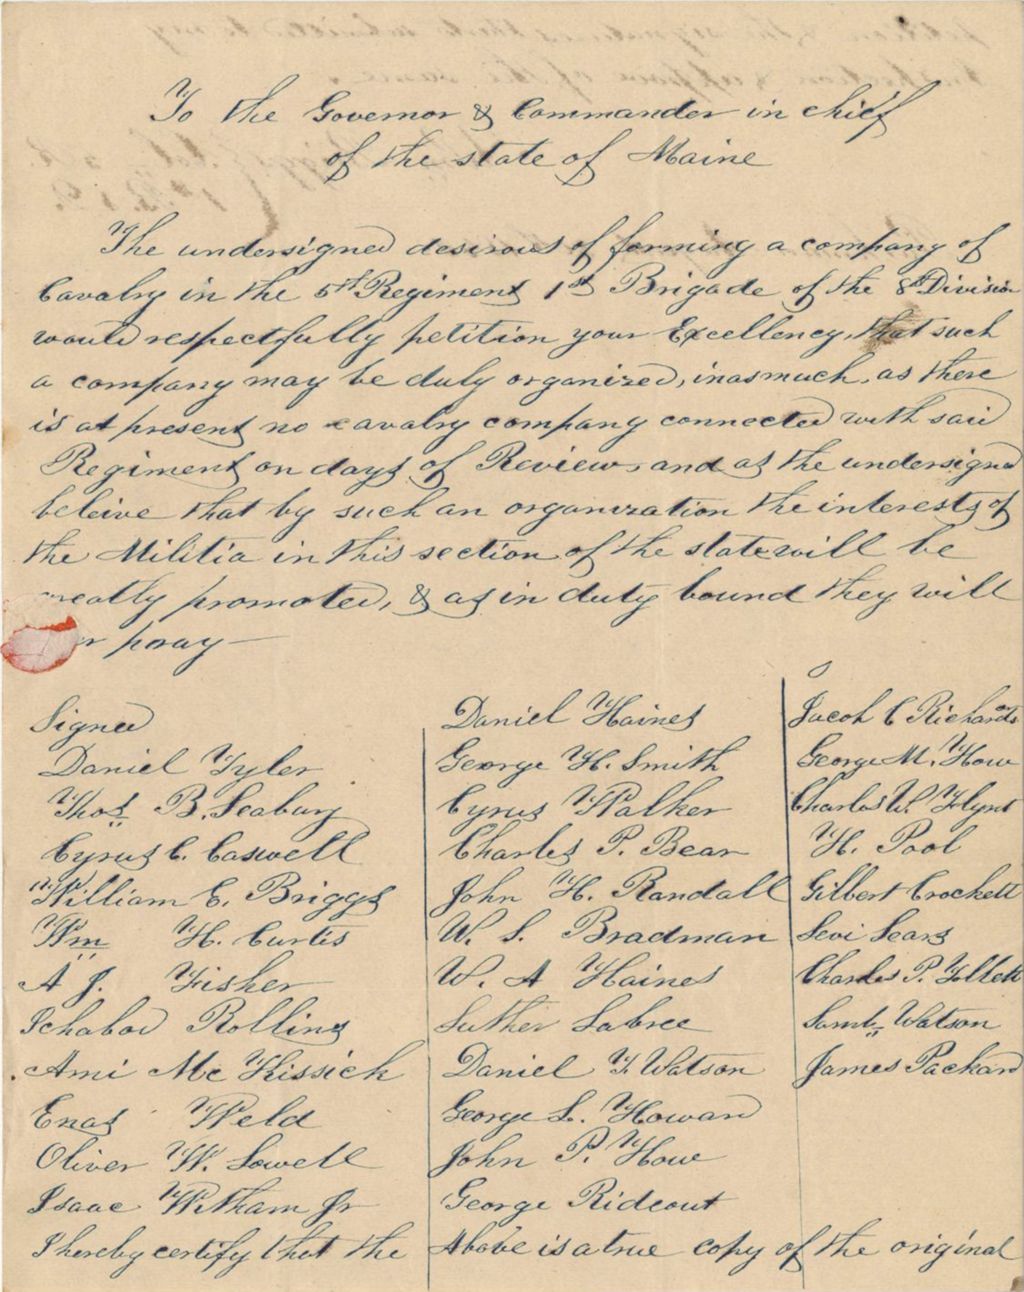 To the Governor & Commander in chief
of the state of Maine
The undersigned desirous of forming a company of
Cavalry in the 5th Regiment 1st Brigade of the 8th Division
would respectfully petition your Excellency, that such
a company may be duly organized, inasmuch, as there
is at present no cavalry company connected with said
Regiment on days of Review, and as the undersigned
beleive that by such an organization the interests of
the Militia in this section of the state will be
greatly promoted, & as in duty bound they will
pray —
Signed
Daniel Tyler
Thos B. Seabury
Cyrus C. Caswell
William E. Briggs
Wm H. Curtis
A J. Fisher
Ichabod Rollins
Ami Mc Kissick
Enas Weld
Oliver W. Lowell
Isaac Witham Jr
Daniel Haines
George H. Smith
Cyrus Walker
Charles P. Bear
John H. Randall
W. S. Bradman
W. A Haines
Luther Labree
Daniel F. Watson
George L. Howard
John P. Howe
George Rideout
Jacob C Richards
George M. How
Charles W. Flynt
H. Pool
Gilbert Crockett
Levi Sears
Charles P. Follett
Saml. Watson
James Packard
I hereby certify that the Above is a true copy of the original